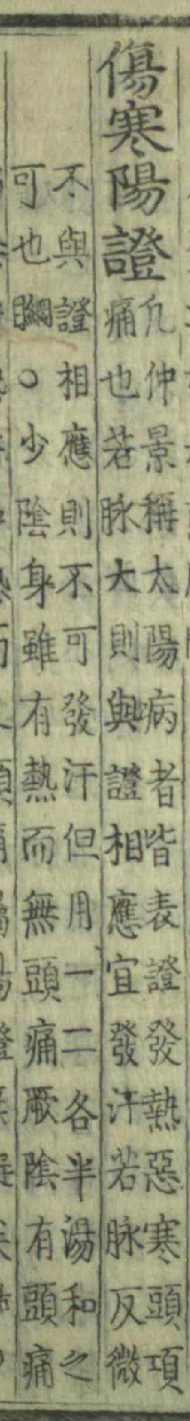 傷寒陽證
凢仲景稱太陽病者皆表證發熱惡寒頭項
痛也若脉大則與證相應宜發汗若脉反微
不與證相應則不可發汗但用一二各半湯和之
可也綱○少陰身雖有熱而無頭痛厥陰有頭痛